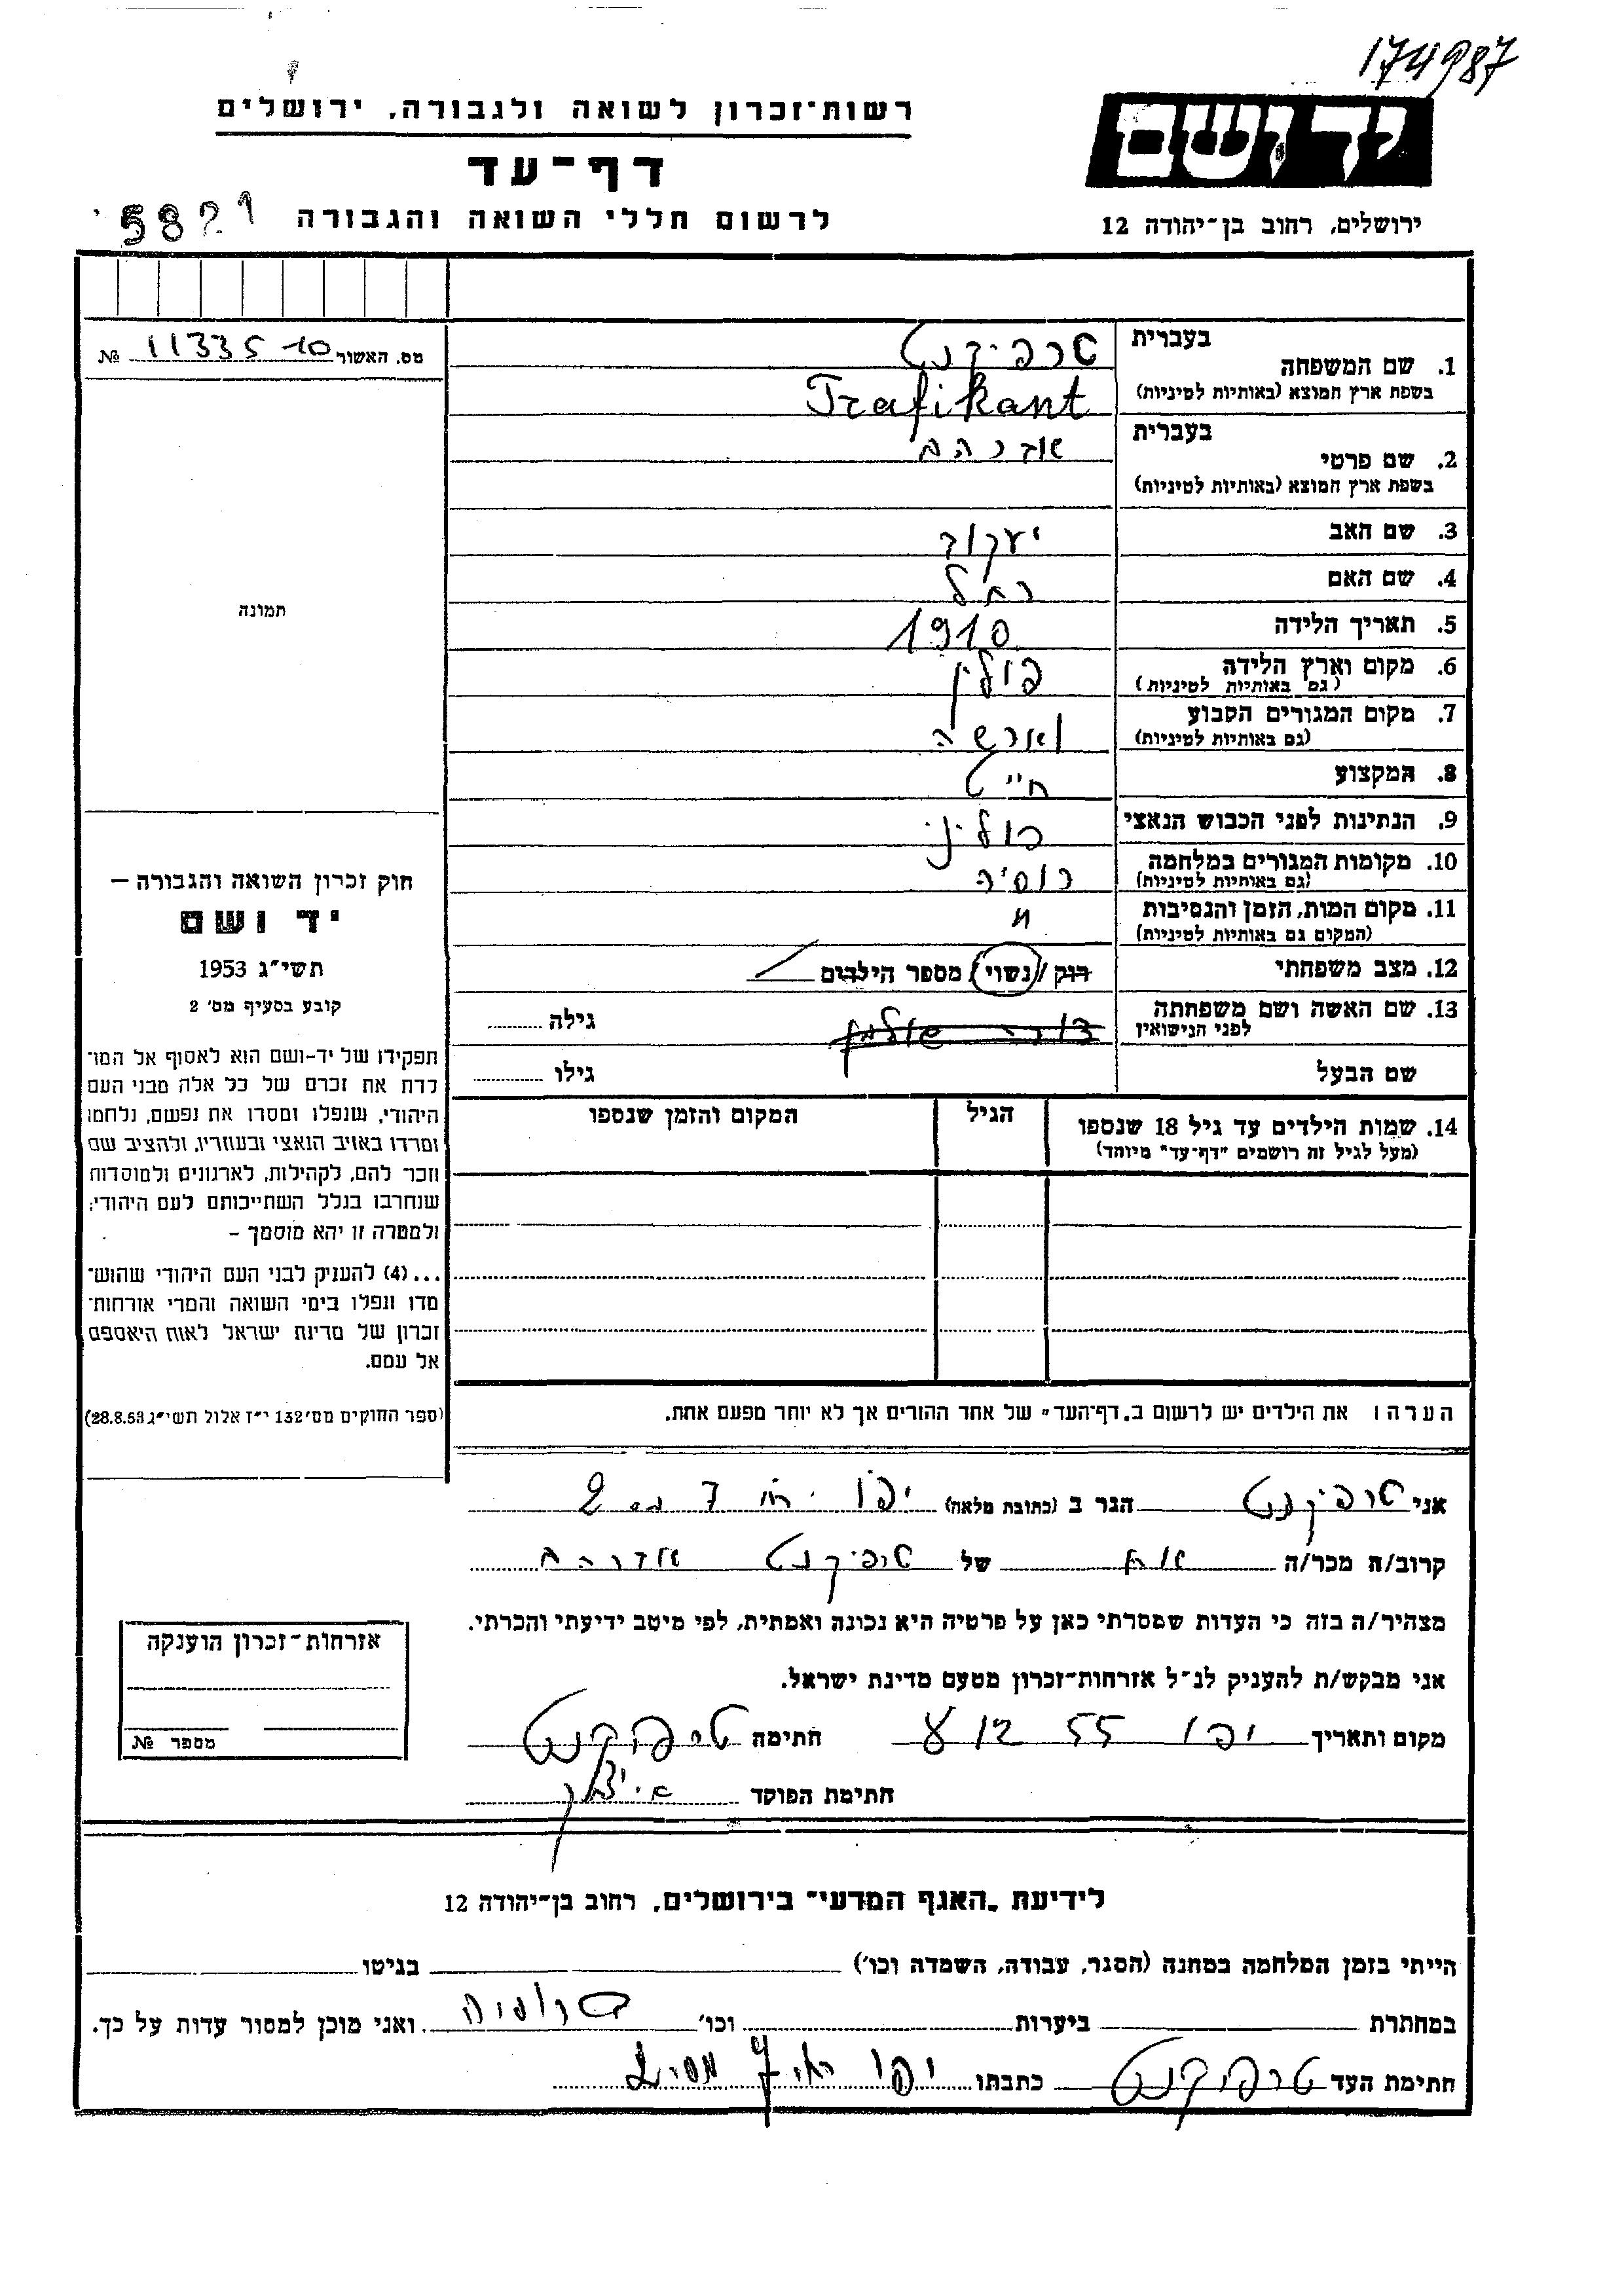 174987
רשות־זכרון לשואה ולגבורה, ירושלים
יד ושם
דף־עד
לרשום חללי השואה והגבורה
5821
ירושלים, רחוב בן־יהודה 12
מס. האשור 11335 10 №
1. שם המשפחה
בעברית
טרפיקנט
בשפת ארץ המוצא (באותיות לטיניות)
Trafikant
2. שם פרטי
בעברית
אברהם
בשפת ארץ המוצא (באותיות לטיניות)
3. שם האב
יעקוב
4. שם האם
רחל
5. תאריך הלידה
1910
6. מקום וארץ הלידה
(גם באותיות לטיניות)
פולין
7. מקום המגורים הקבוע
(גם באותיות לטיניות)
וארשה
8. המקצוע
חייט
9. הנתינות לפני הכבוש הנאצי
פולין
10. מקומות המגורים במלחמה
(גם באותיות לטיניות)
רוסיה
11. מקום המות, הזמן והנסיבות
(המקום גם באותיות לטיניות)
״
12. מצב משפחתי
רוק / נשוי / מספר הילדים
13. שם האשה ושם משפחתה
לפני הנישואין
גילה
שם הבעל
גילו
14. שמות הילדים עד גיל 18 שנספו
(מעל לגיל זה רושמים "דף־עד" מיוחד)
הגיל
המקום והזמן שנספו
הערה: את הילדים יש לרשום ב„דף־העד" של אחד ההורים אך לא יותר מפעם אחת.
תמונה
חוק זכרון השואה והגבורה —
יד ושם
תשי״ג 1953
קובע בסעיף מס׳ 2
תפקידו של יד-ושם הוא לאסוף אל המו־
לדת את זכרם של כל אלה מבני העם
היהודי, שנפלו ומסרו את נפשם, נלחמו
ומרדו באויב הנאצי ובעוזריו, ולהציב שם
וזכר להם, לקהילות, לארגונים ולמוסדות
שנחרבו בגלל השתייכותם לעם היהודי;
ולמטרה זו יהא מוסמך –
...(4) להעניק לבני העם היהודי שהוש־
מדו ונפלו בימי השואה והמרי אזרחות־
זכרון של מדינת ישראל לאות היאספם
אל עמם.
(ספר החוקים מס׳ 132 י״ז אלול תשי״ג 28.8.53)
אני טרפיקנט הגר ב (כתובת מלאה) יפו 7
קרוב/ה מכר/ה אח של טרפיקנט אברהם
מצהיר/ה בזה כי העדות שמסרתי כאן על פרטיה היא נכונה ואמתית, לפי מיטב ידיעתי והכרתי.
אני מבקש/ת להעניק לנ״ל אזרחות־זכרון מטעם מדינת ישראל.
מקום ותאריך יפו 55 חתימה טרפיקנט
חתימת הפוקד
אזרחות־זכרון הוענקה
מספר №
לידיעת „האגף המדעי" בירושלים, רחוב בן־יהודה 12
הייתי בזמן המלחמה במחנה (הסגר, עבודה, השמדה וכו׳) בגיטו
במחתרת ביערות וכו׳ ואני מוכן למסור עדות על כך.
חתימת העד טרפיקנט כתבתו יפו 7